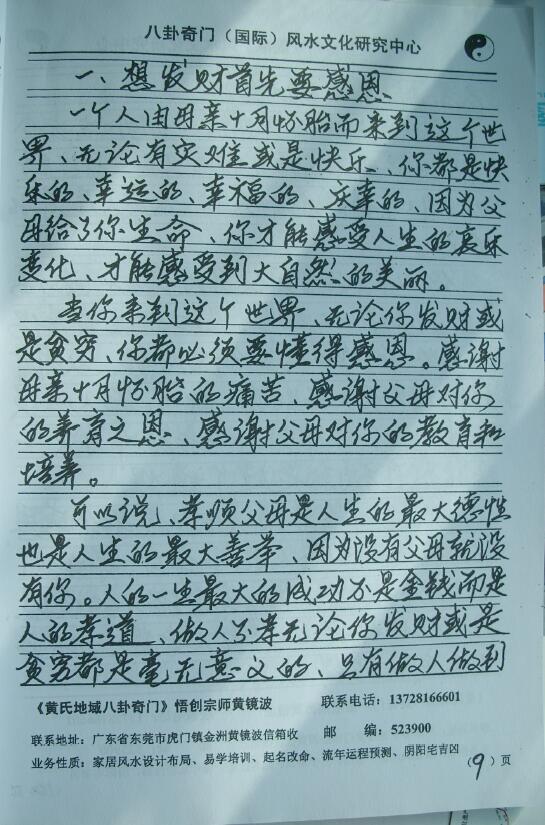 八卦奇门（国际）风水文化研究中心
一、想发财首先要感恩
一个人由母亲十月怀胎而来到这个世
界、无论有灾难或是快乐、你都是快
乐的、幸运的、幸福的、庆幸的、因为父
母给了你生命、你才能感受人生的哀乐
变化、才能感受到大自然的美丽。
当你来到这个世界、无论你发财或
是贫穷、你都必须要懂得感恩。感谢
母亲十月怀胎的痛苦、感谢父母对你
的养育之恩、感谢父母对你的教育和
培养。
可以说、孝顺父母是人生的最大德性
也是人生的最大善举、因为没有父母就没
有你。人的一生最大的成功不是金钱而是
人的孝道、做人不孝无论你发财或是
贫穷都是毫无意义的、只有做人做到
《黄氏地域八卦奇门》悟创宗师黄镜波 联系电话：13728166601
联系地址：广东省东莞市虎门镇金洲黄镜波信箱收 邮 编：523900
业务性质：家居风水设计布局、易学培训、起名改命、流年运程预测、阴阳宅吉凶 （9）页